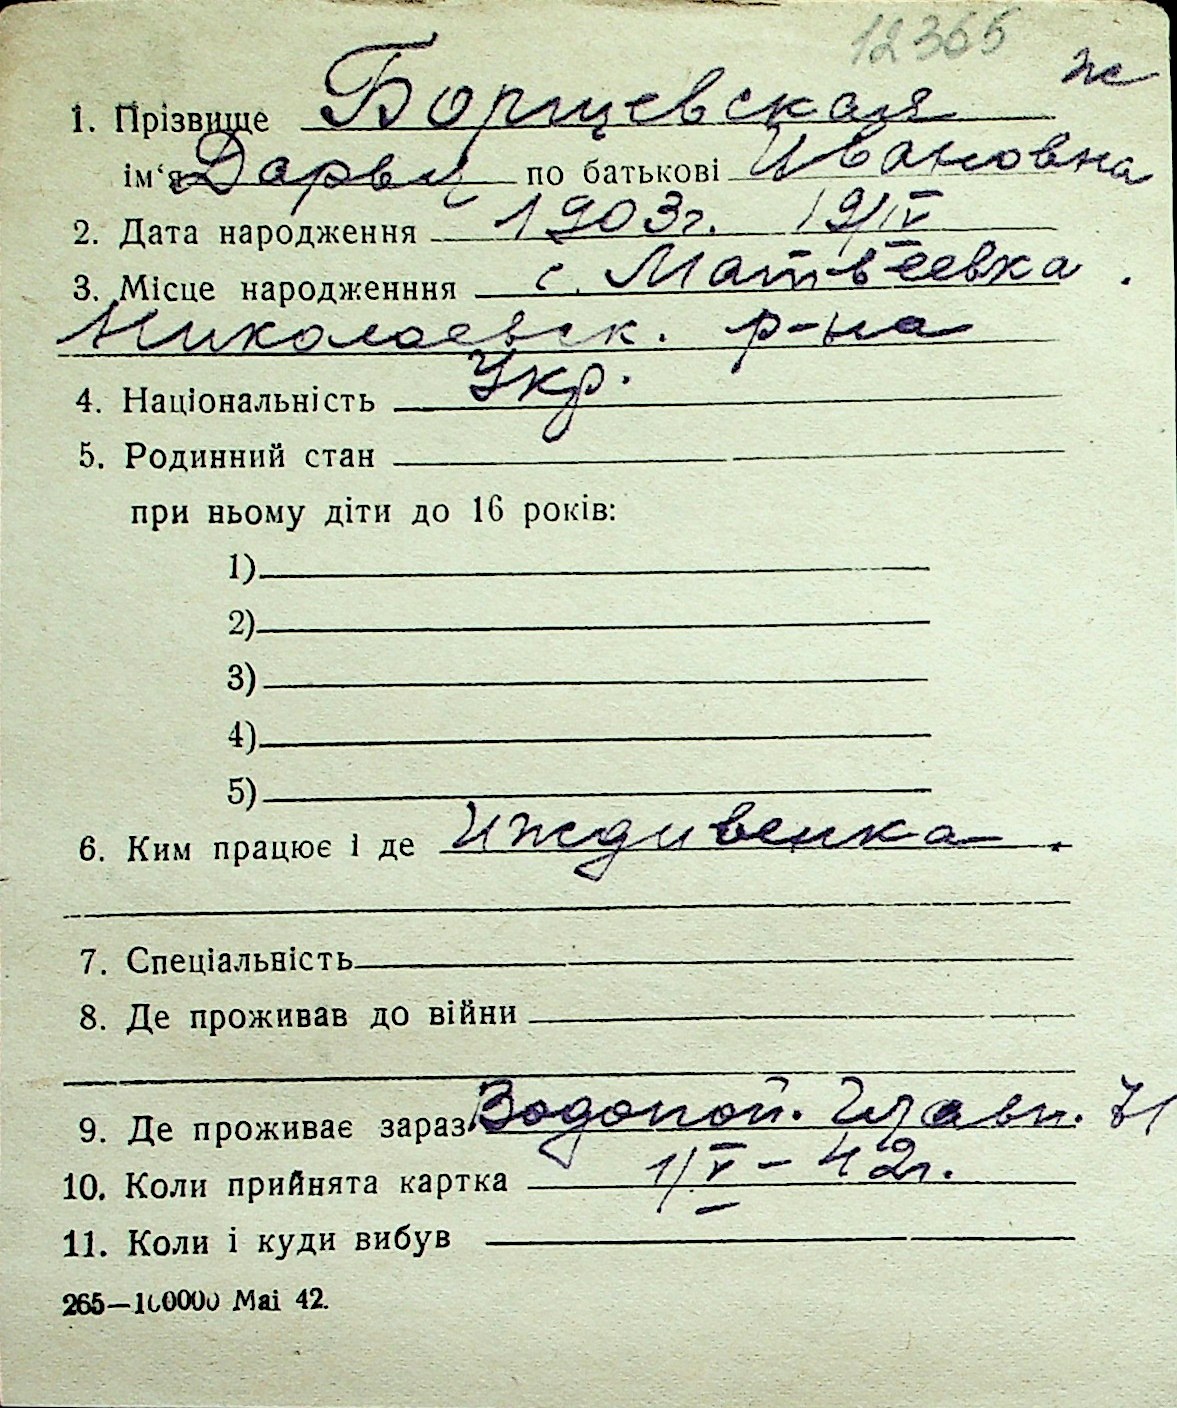 12365
ж
1. Прізвище Борщевская
ім‘я Дарья по батькові Ивановна
2. Дата народження 1903г. 19/IV
3. Місце народженння с. Матвеевка.
Николаевск. р-на
4. Національність Укр.
5. Родинний стан
при ньому діти до 16 років:
1)
2)
3)
4)
5)
6. Ким працює і де Иждивенка.
7. Спеціальність
8. Де проживав до війни
9. Де проживає зараз Водопой. Главн. 71
10. Коли прийнята картка 1/V – 42г.
11. Коли і куди вибув
265—100000 Маі 42.